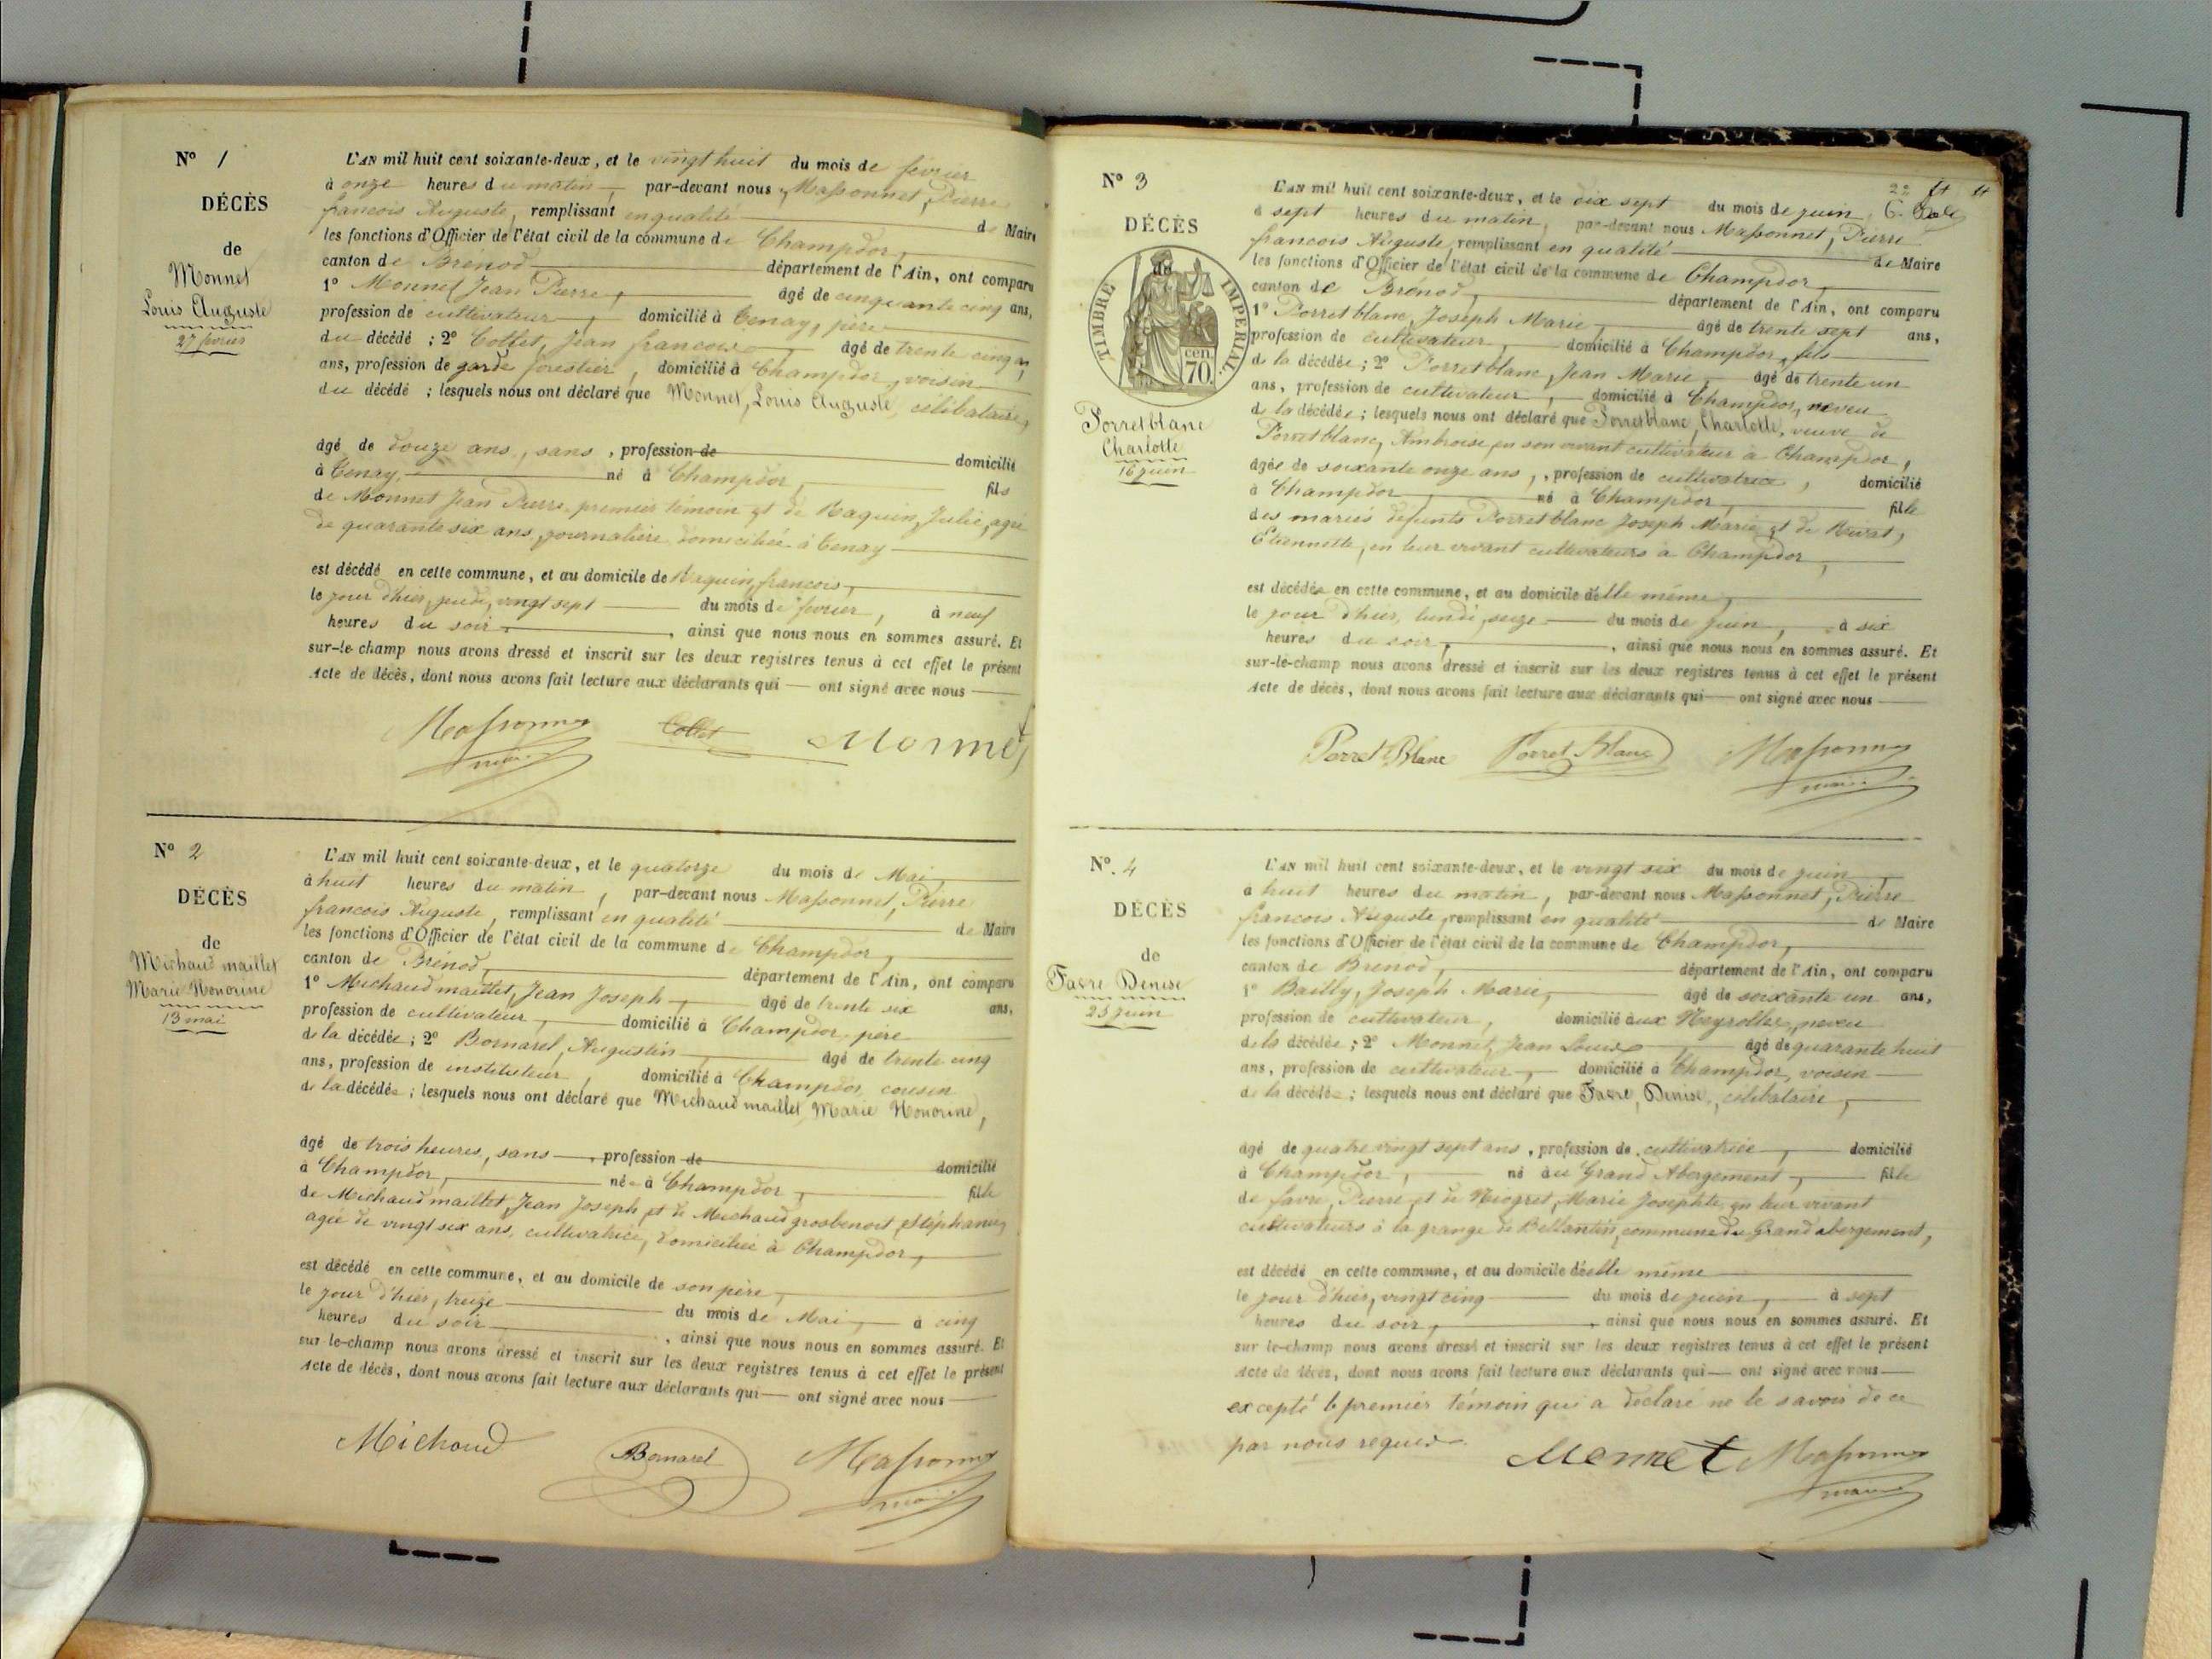 N° 1
DÉCÈS
de
Monnet
Louis Auguste
27 février
L'AN mil huit cent soixante-deux, et le vingt huit du mois de février
à onze heures du matin, par-devant nous, Massonnet, Pierre
francois Auguste, remplissant en qualité de Maire
les fonctions d'Officier de l'état civil de la commune de Champdor,
canton de Brenod département de l'Ain, ont comparu
1° Monnet Jean Pierre, âgé de cinquante cinq ans,
profession de cultivateur, domicilié à Tenay, père
du décédé ; 2° Collet, Jean francois, âgé de trente cinq
ans, profession de garde forestier, domicilié à Champdor, voisin
du décédé ; lesquels nous ont déclaré que Monnet, Louis Auguste, célibataire,
âgé de douze ans, sans, profession de domicilié
à Tenay, né à Champdor, fils
de Monnet Jean Pierre, premier témoin et de Raquin, Julie, agée
de quarante six ans, journalière domiciliée à Tenay
est décédé en cette commune, et au domicile de Raquin, francois,
le jour d'hier, jeudi, vingt sept du mois de février, à neuf
heures du soir, ainsi que nous nous en sommes assuré. Et
sur-le-champ nous avons dressé et inscrit sur les deux registres tenus à cet effet le présent
Acte de décès, dont nous avons fait lecture aux déclarants qui ont signé avec nous
Massonnet Collet Monnet
maire
N° 2
DÉCÈS
de
Michaud maillet
Marie Honorine
13 mai
L'AN mil huit cent soixante-deux, et le quatorze du mois de Mai,
à huit heures du matin, par-devant nous Massonnet, Pierre
francois Auguste, remplissant en qualité de Maire
les fonctions d'Officier de l'état civil de la commune de Champdor,
canton de Brénod, département de l'Ain, ont comparu
1° Michaud maillet, Jean Joseph, âgé de trente six ans,
profession de cultivateur, domicilié à Champdor, père
de la décédée ; 2° Bornarel, Augustin, âgé de trente cinq
ans, profession de instituteur, domicilié à Champdor, cousin
de la décédée ; lesquels nous ont déclaré que Michaud maillet, Marie Honorine,
âgé de trois heures, sans, profession de domicilié
à Champdor, née à Champdor, fille
de Michaud maillet, Jean Joseph, et de Michaud grosbenoit, Stéphanie,
agée de vingt six ans, cultivatrice, domiciliée à Champdor,
est décédé en cette commune, et au domicile de son père,
le jour d'hier, treize du mois de Mai, à cinq
heures du soir, ainsi que nous nous en sommes assuré. Et
sur le-champ nous avons dressé et inscrit sur les deux registres tenus à cet effet le présent
Acte de décès, dont nous avons fait lecture aux déclarants qui ont signé avec nous
Michaud Bornarel Massonnet
maire
22
N° 3
DÉCÈS
de
TIMBRE IMPERIAL
70 cen.
Porret blanc
Charlotte
16 juin
L'AN mil huit cent soixante-deux, et le dix sept du mois de juin,
à sept heures du matin, par-devant nous Massonnet, Pierre
francois Auguste, remplissant en qualité de Maire
les fonctions d'Officier de l'état civil de la commune de Champdor,
canton de Brénod, département de l'Ain, ont comparu
1° Porret blanc, Joseph Marie, âgé de trente sept ans,
profession de cultivateur, domicilié à Champdor, fils
de la décédée ; 2° Porret blanc, Jean Marie, âgé de trente un
ans, profession de cultivateur, domicilié à Champdor, neveu
de la décédée ; lesquels nous ont déclaré que Porret blanc, Charlotte, veuve de
Porret blanc, Ambroise, en son vivant cultivateur à Champdor,
âgée de soixante onze ans, profession de cultivatrice, domicilié
à Champdor né à Champdor, fille
des mariés défunts Porret blanc Joseph Marie, et de Rivat,
Étiennette, en leur vivant cultivateurs à Champdor,
est décédée en cette commune, et au domicile d'elle même,
le jour d'hier, lundi, seize du mois de juin, à six
heures du soir, ainsi que nous nous en sommes assuré. Et
sur-le-champ nous avons dressé et inscrit sur les deux registres tenus à cet effet le présent
Acte de décès, dont nous avons fait lecture aux déclarants qui ont signé avec nous
Porret Blanc Porret Blanc Massonnet
maire
N°. 4
DÉCÈS
de
Favre Denise
25 juin
L'AN mil huit cent soixante-deux, et le vingt six du mois de juin,
à huit heures du matin, par-devant nous Massonnet, Pierre
francois Auguste, remplissant en qualité de Maire
les fonctions d'Officier de l'état civil de la commune de Champdor,
canton de Brenod, département de l'Ain, ont comparu
1° Bailly, Joseph Marie, âgé de soixante un ans,
profession de cultivateur, domicilié aux Neyrolles, neveu
de la décédée ; 2° Monnet, Jean Louis, âgé de quarante huit
ans, profession de cultivateur, domicilié à Champdor, voisin
de la décédée ; lesquels nous ont déclaré que Favre, Denise, célibataire,
âgé de quatre vingt sept ans, profession de cultivatrice, domicilié
à Champdor, né au Grand Abergement, fille
de favre, Pierre, et de Niogret, Marie Josephte, en leur vivant
cultivateurs à la grange de Bellantin, commune du Grand abergement,
est décédé en cette commune, et au domicile d'elle même
le jour d'hier, vingt cinq du mois de juin, à sept
heures du soir, ainsi que nous nous en sommes assuré. Et
sur le-champ nous avons dressé et inscrit sur les deux registres tenus à cet effet le présent
Acte de décès, dont nous avons fait lecture aux déclarants qui ont signé avec nous
excepté le premier témoin qui a déclaré ne le savoir de ce
par nous requis.
Monnet Massonnet
maire